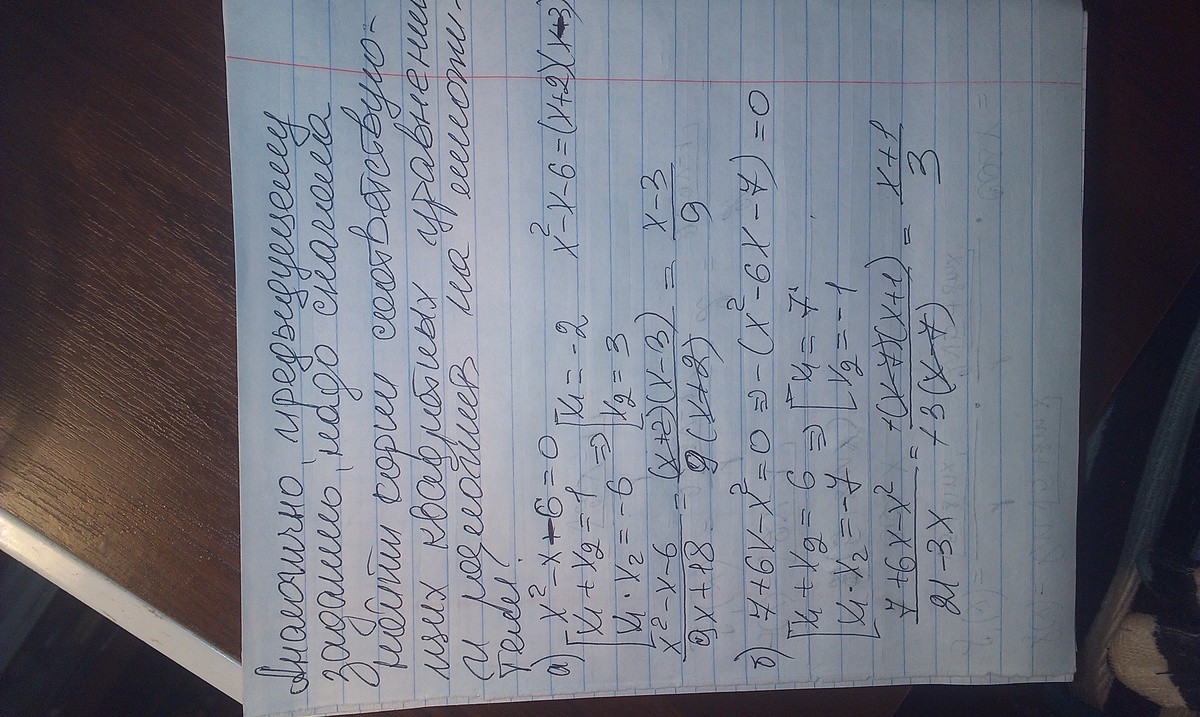 Аналогично предыдущему
заданию, надо сначала
найти корни соответствую-
щих квадратных уравнений
и разложив на множи-
тели:
а) x² - x - 6 = 0
[x₁ + x₂ = 1 ⇒ [x₁ = -2 x² - x - 6 = (x+2)(x-3)
[x₁ · x₂ = -6 [x₂ = 3
x² - x - 6 / 9x + 18 = (x+2)(x-3) / 9(x+2) = x-3 / 9
б) 7 + 6x - x² = 0 ⇒ -(x² - 6x - 7) = 0
[x₁ + x₂ = 6 ⇒ [x₁ = 7
[x₁ · x₂ = -7 [x₂ = -1
7 + 6x - x² / 21 - 3x = +(x-7)(x+1) / +3(x-7) = x+1 / 3